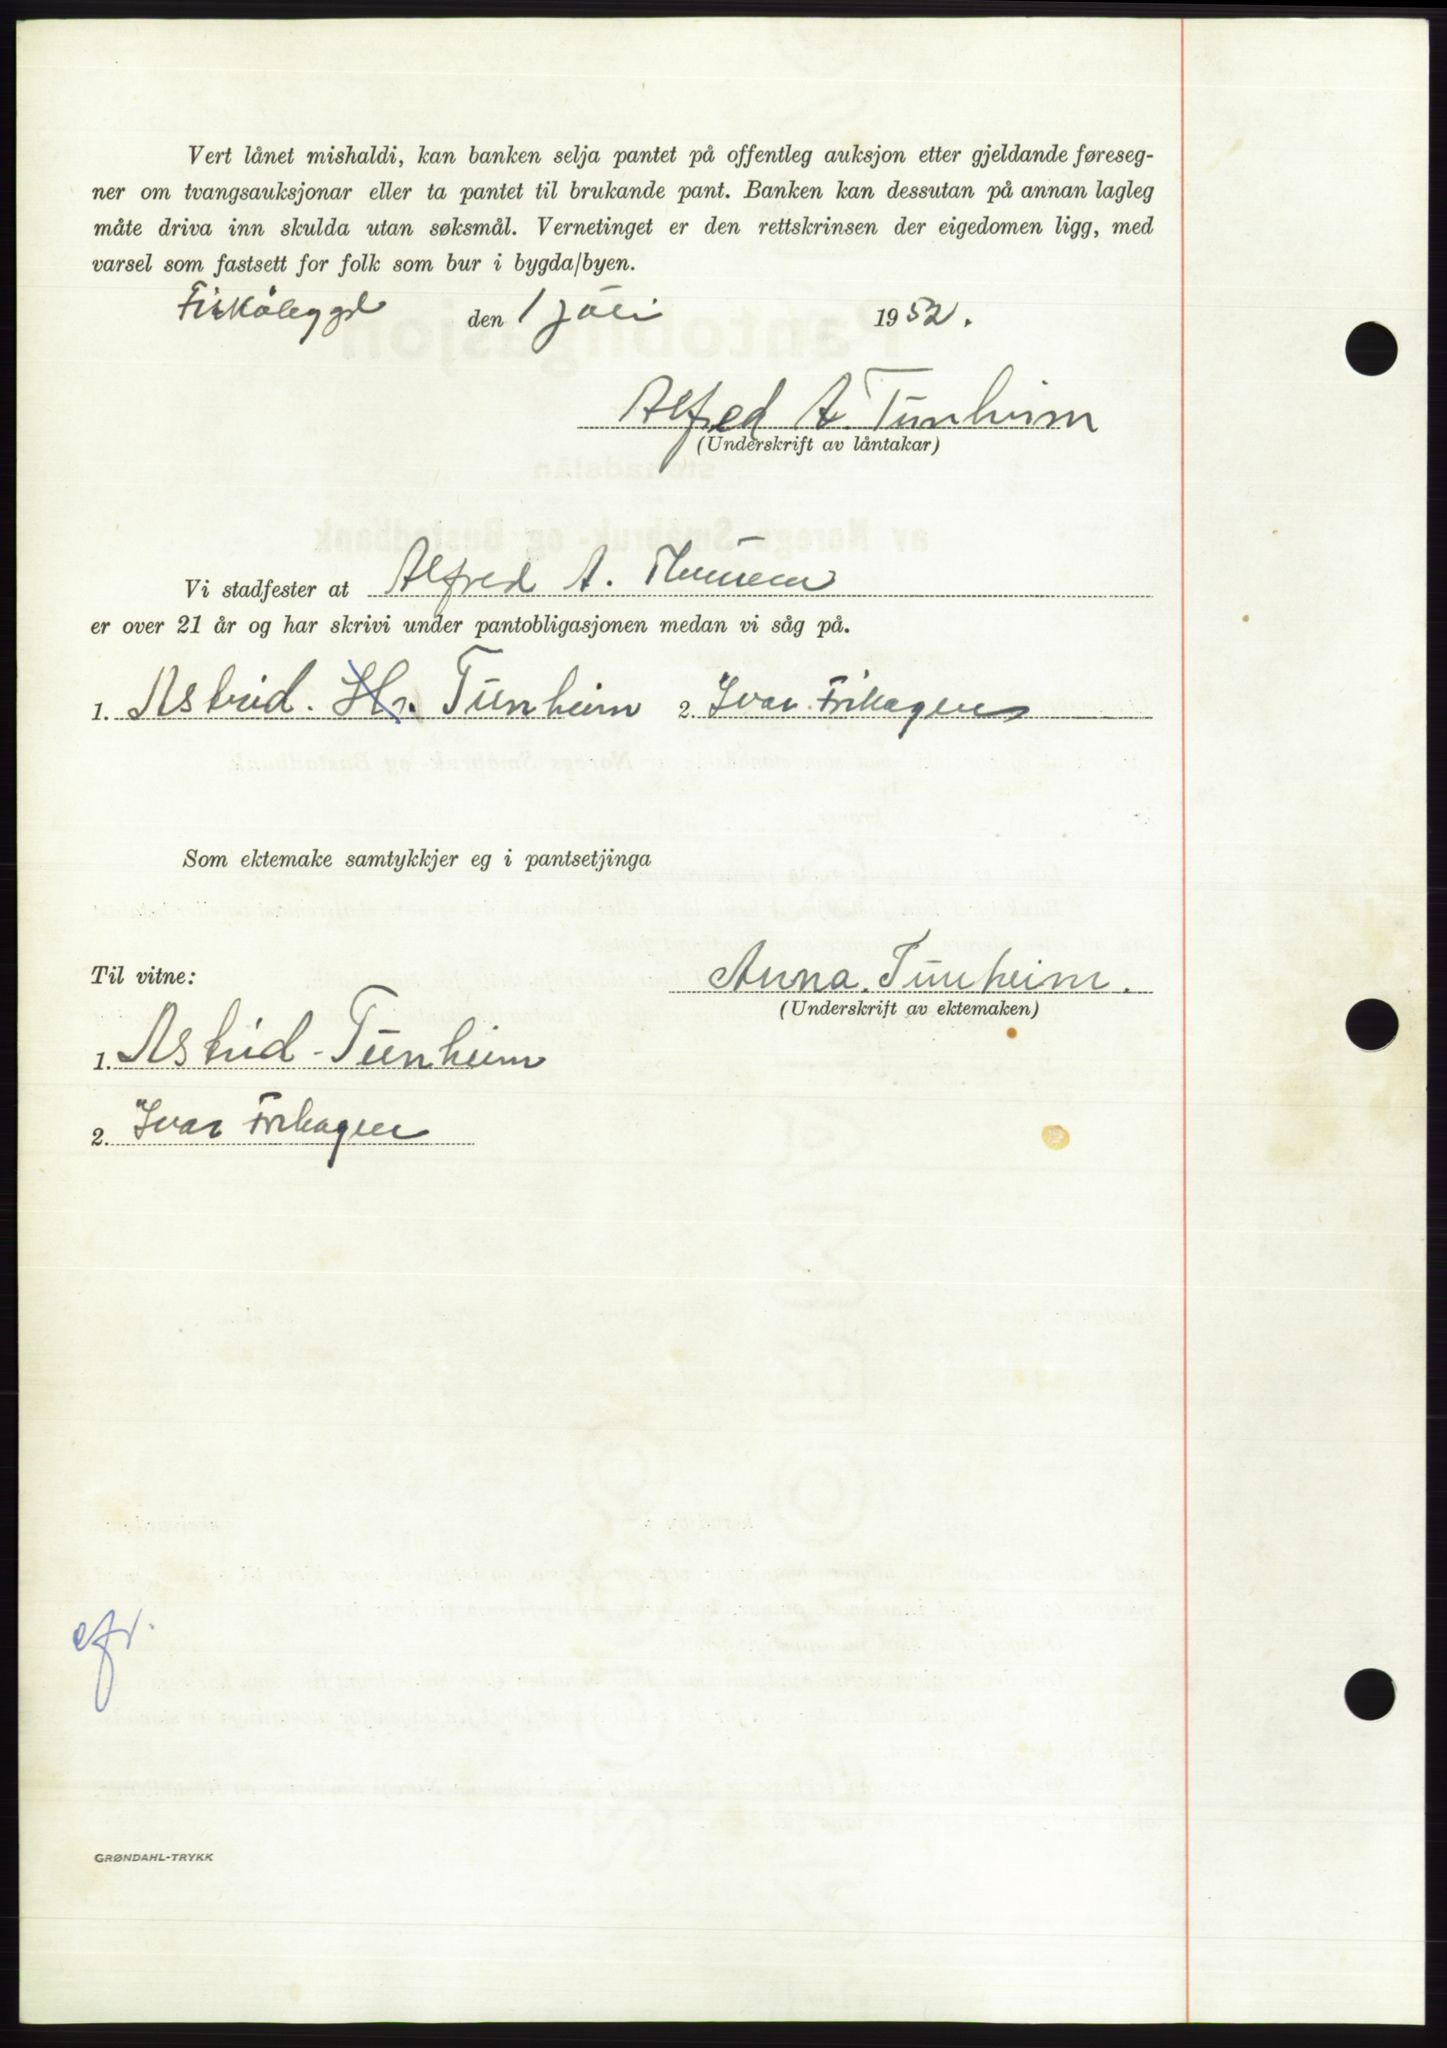 Vert lånet mishaldi, kan banken selja pantet på offentleg auksjon etter gjeldande føreseg-
ner om tvangsauksjonar eller ta pantet til brukande pant. Banken kan dessutan på annan lagleg
måte driva inn skulda utan søksmål. Vernetinget er den rettskrinsen der eigedomen ligg, med
varsel som fastsett for folk som bur i bygda/byen.
Fiskåbygd den 1 juli 1952.
Alfred A. Tunheim
(Underskrift av låntakar)
Vi stadfester at Alfred A.
er over 21 år og har skrivi under pantobligasjonen medan vi såg på.
1. Astrid. Tunheim 2. Ivar Frihagen
Som ektemake samtykkjer eg i pantsetjinga
Til vitne: Anna. Tunheim.
(Underskrift av ektemaken)
1. Astrid Tunheim
2. Ivar Frihagen
GRØNDAHL-TRYKK